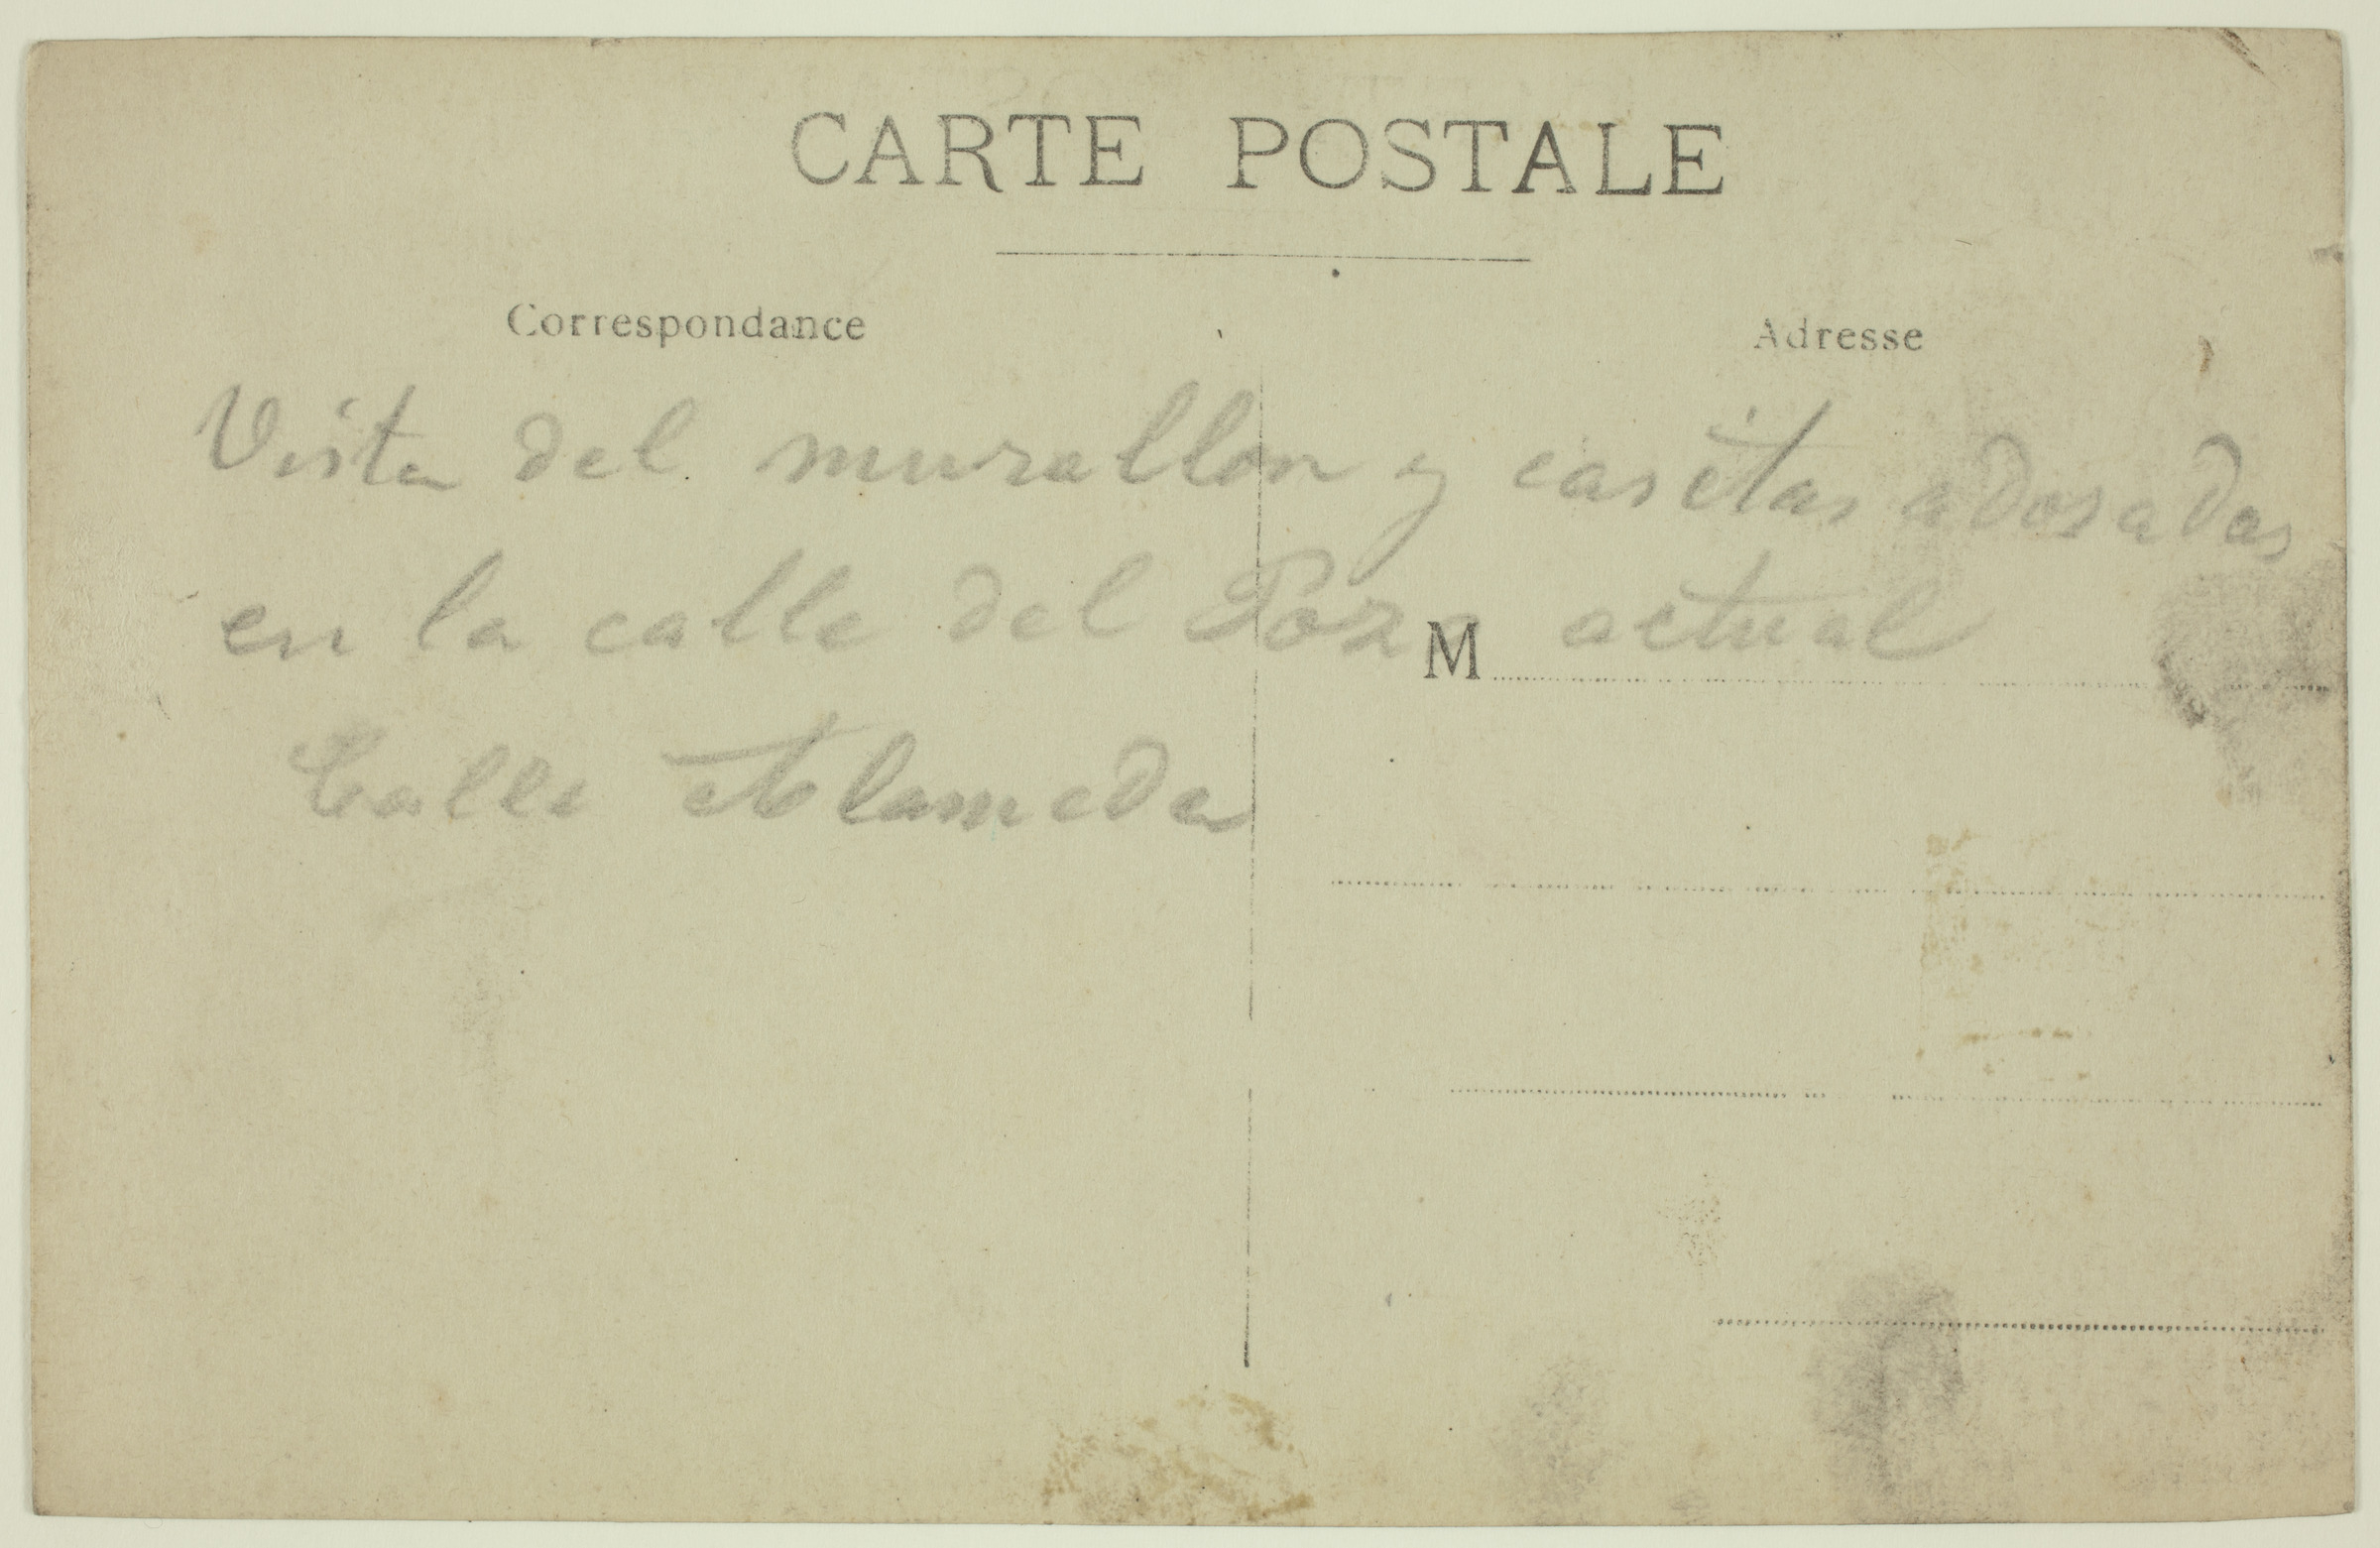 CARTE POSTALE
Correspondance
Adresse
Vista del murallon y casetas adosadas
en la calle del Pozo actual
M
Calle Alameda